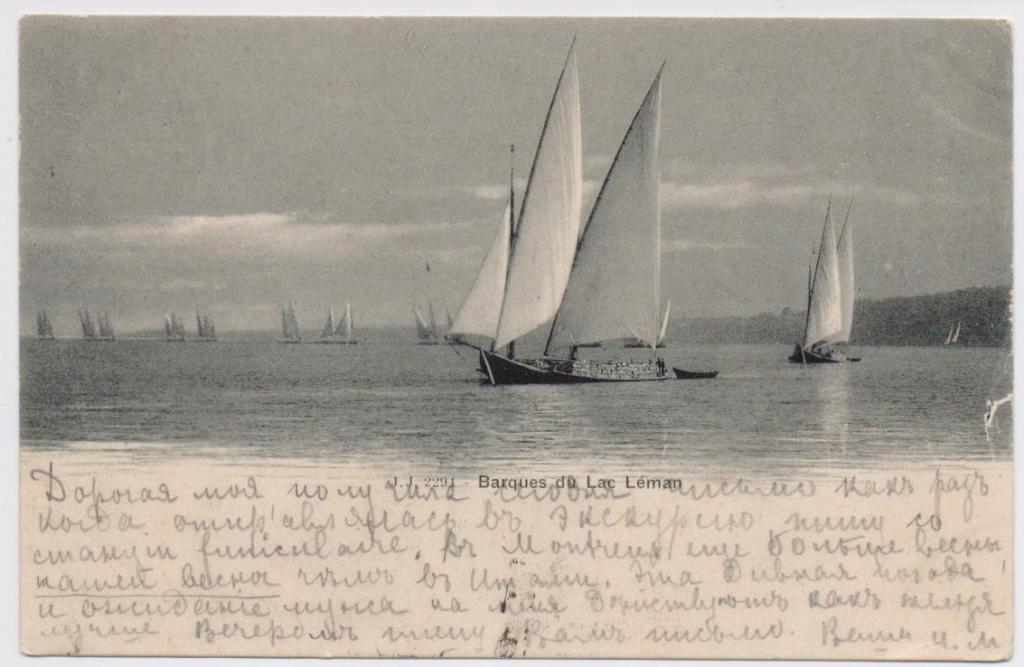 J.J. 2291 - Barques du Lac Léman
Дорогая моя получила сегодня письмо какъ разъ
когда отправлялась въ экскурсію пишу со
станціи funiculaire. Въ Montreux еще больше весны
нашей весны чѣмъ въ Итали. Эта дивная погода
и ожиданіе мужа на меня дѣйствуютъ какъ нельзя
лучше Вечеромъ пишу Вамъ письмо. Ваша